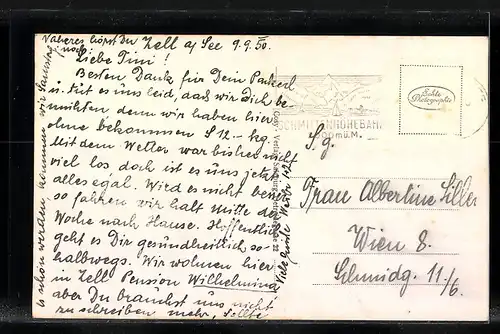 Näheres hörst Du noch!
Zell a/See 9.9.50.
Liebe Tini!
Besten Dank für Dein Packerl
u. tut es uns leid, dass wir Dich be-
mühten denn wir haben hier
ohne bekommen S 12.- kg.
Mit dem Wetter war bisher nicht
viel los doch ist es uns jetzt
alles egal. Wird es nicht besser
so fahren wir halt Mitte der
Woche nach Hause. Hoffentlich
geht es Dir gesundheitlich so-
halbwegs. Wir wohnen hier
in Zell Pension Wilhelmina
aber Du brauchst uns nicht
zu schreiben mehr, sollte
es schön werden, kommen wir Samstag
SCHMITTENHÖHEBAHN
2000 m ü. M.
Echte
Photographie
S. g.
Frau Albertine Siller
Wien 8.
Schmidg. 11/6.